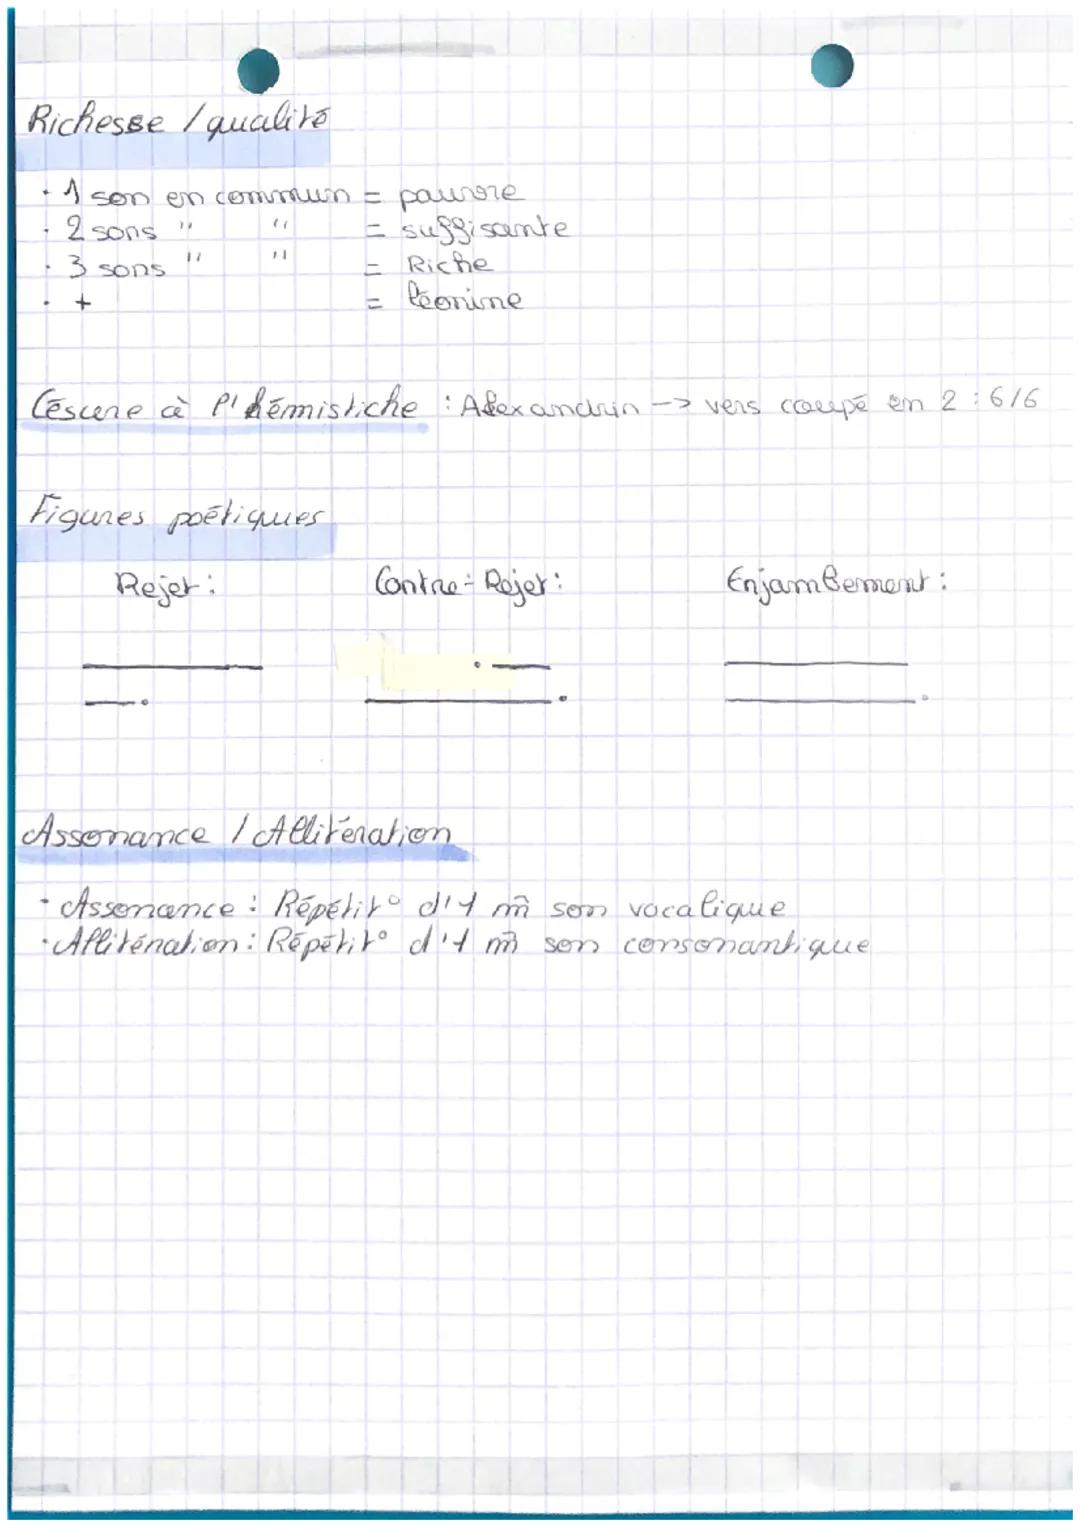 Richesse / qualité
· 1 son en commun = pauvre
· 2 sons " " = suffisante
· 3 sons " " = Riche
· + = léonine
Césure à l'hémistiche : Alexandrin -> vers coupé en 2 : 6/6
Figures poétiques
Rejet : Contre-Rejet : Enjambement :
Assonance / Allitération
· Assonance : Répétit° d'1 m̂ son vocalique
· Allitération : Répétit° d'1 m̂ son consonantique